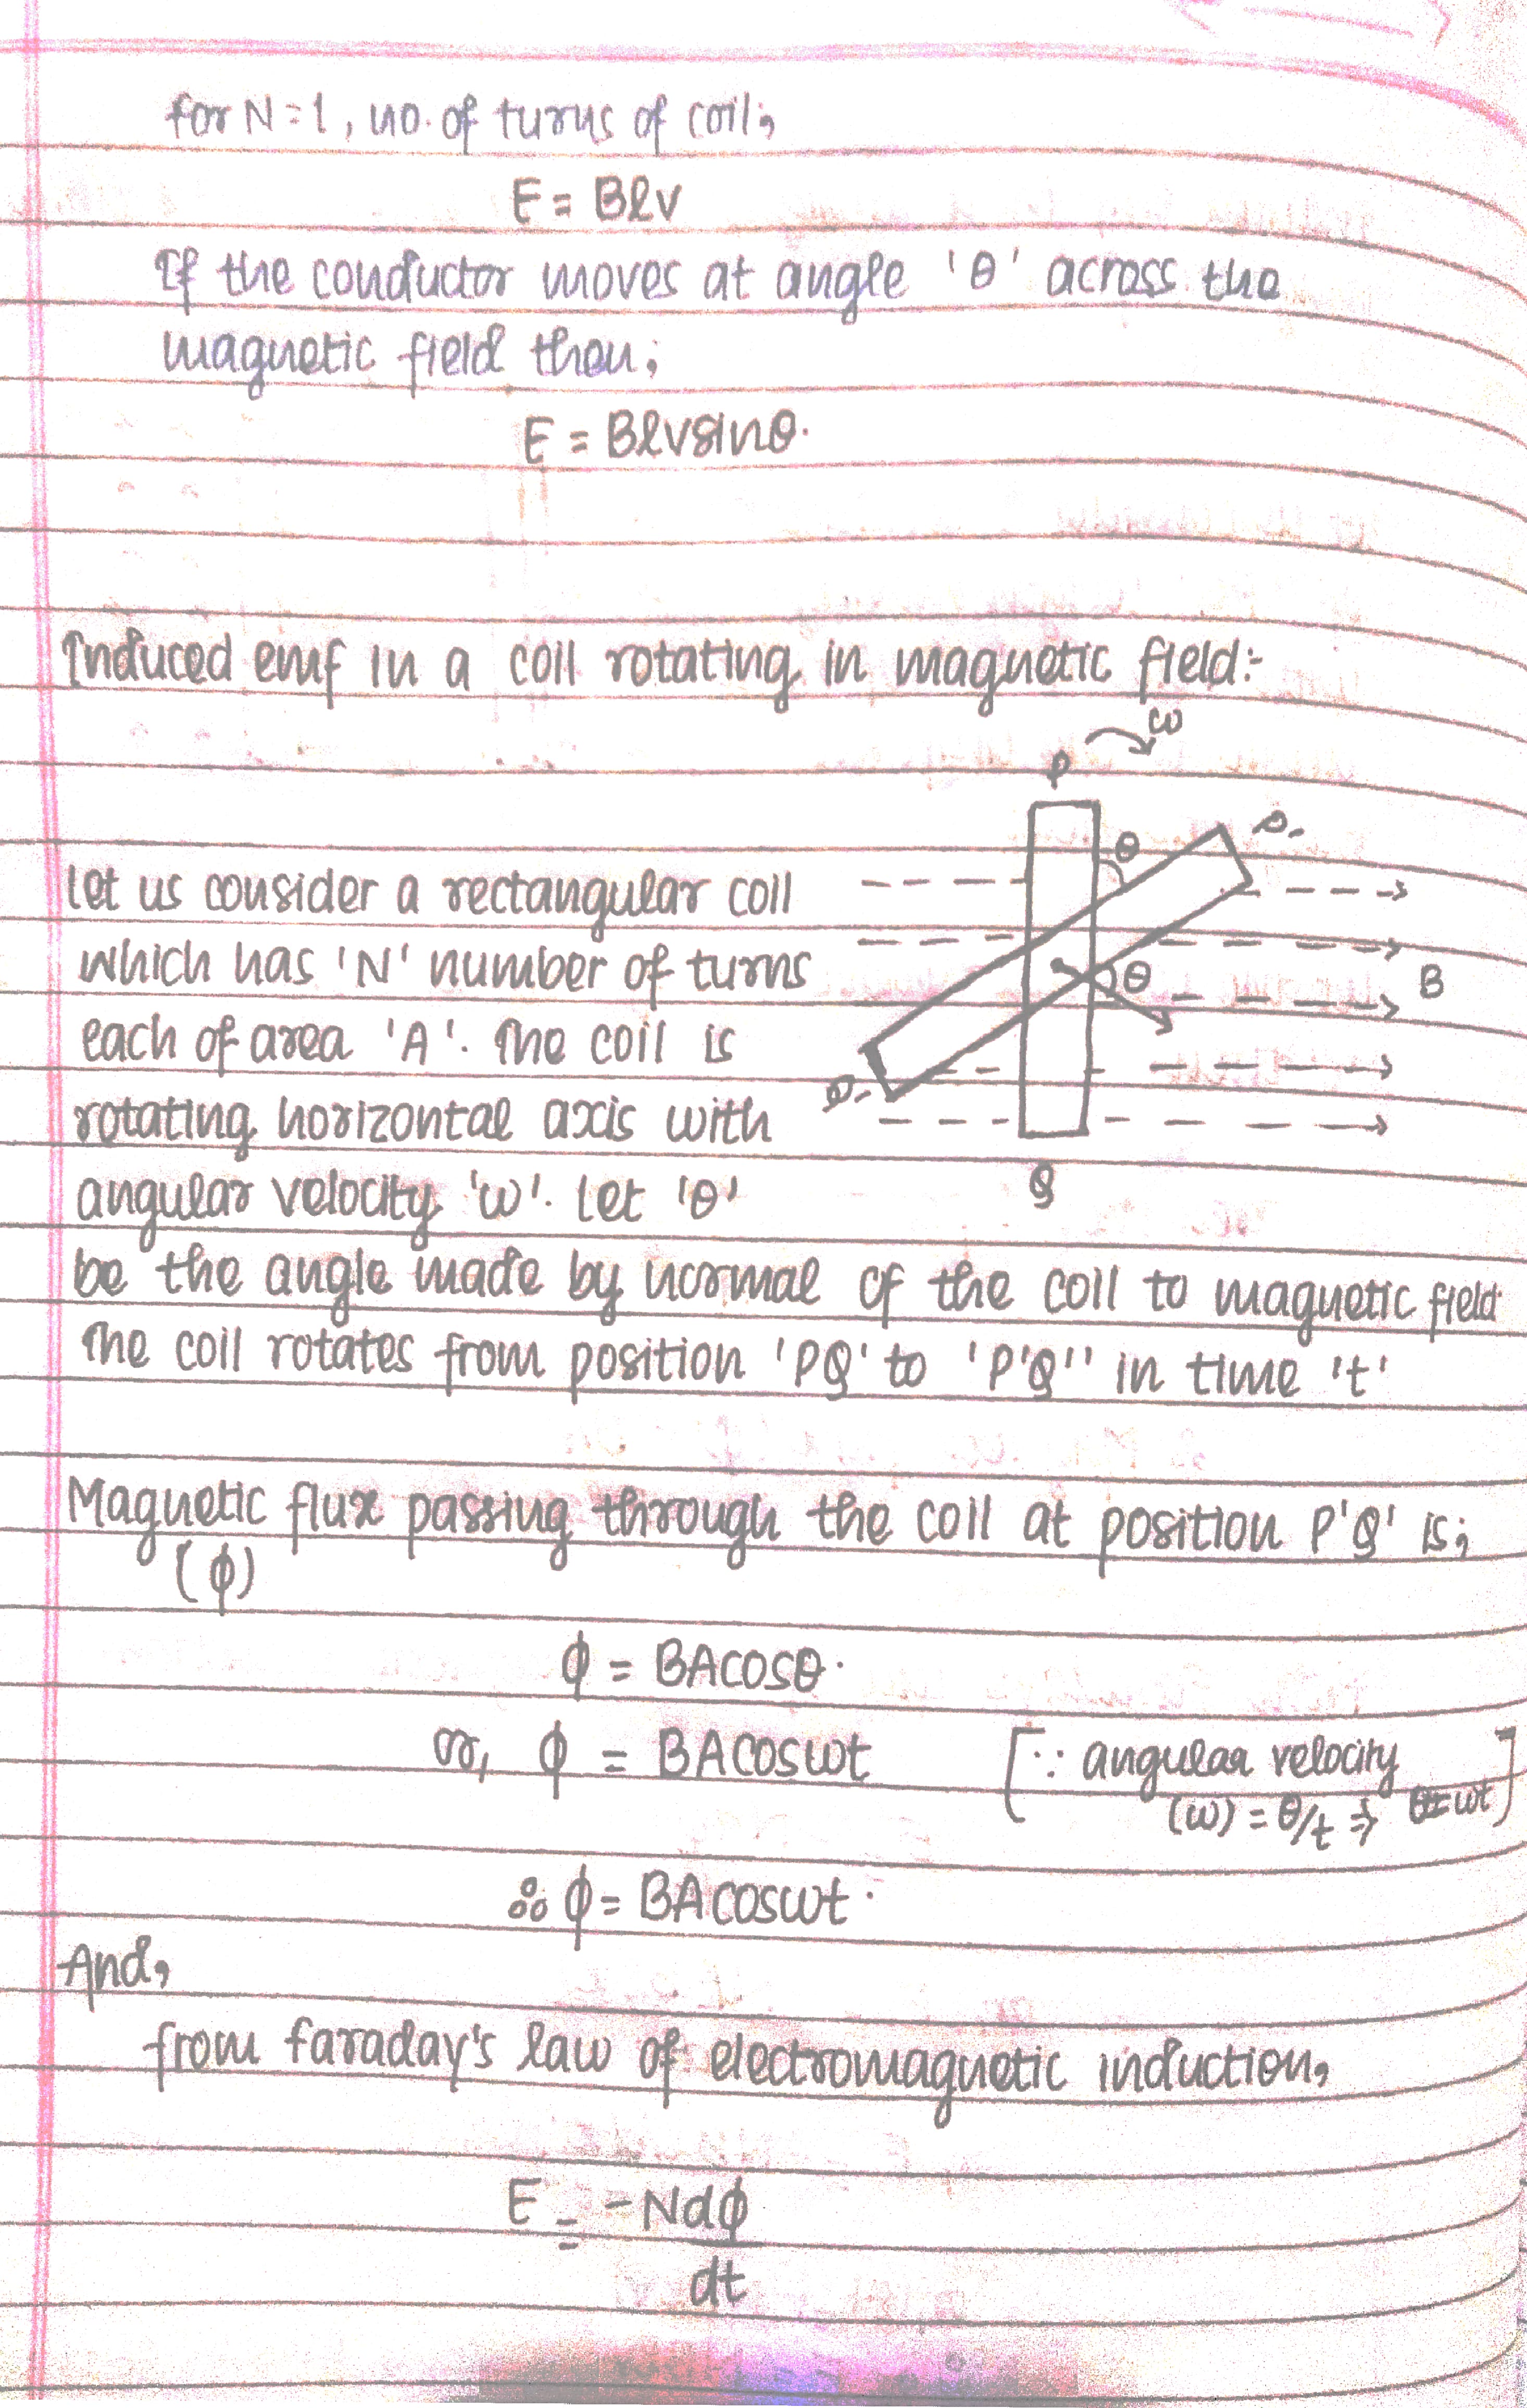 for N=1, no. of turns of coil;
E = Blv
If the conductor moves at angle 'θ' across the
magnetic field then;
E = Blvsinθ.
Induced emf in a coil rotating in magnetic field:-
ω
P
P'
θ
let us consider a rectangular coil
which has 'N' number of turns
θ
B
each of area 'A'. The coil is
Q'
rotating horizontal axis with
angular velocity 'ω'. Let 'θ'
Q
be the angle made by normal of the coil to magnetic field
The coil rotates from position 'PQ' to 'P'Q'' in time 't'
Magnetic flux passing through the coil at position P'Q' is;
(ϕ)
ϕ = BAcosθ.
or, ϕ = BAcosωt [∵ angular velocity
(ω) = θ/t ⇒ θ=ωt]
∴ ϕ = BAcosωt.
And,
from faraday's law of electromagnetic induction,
E = -Ndϕ
dt